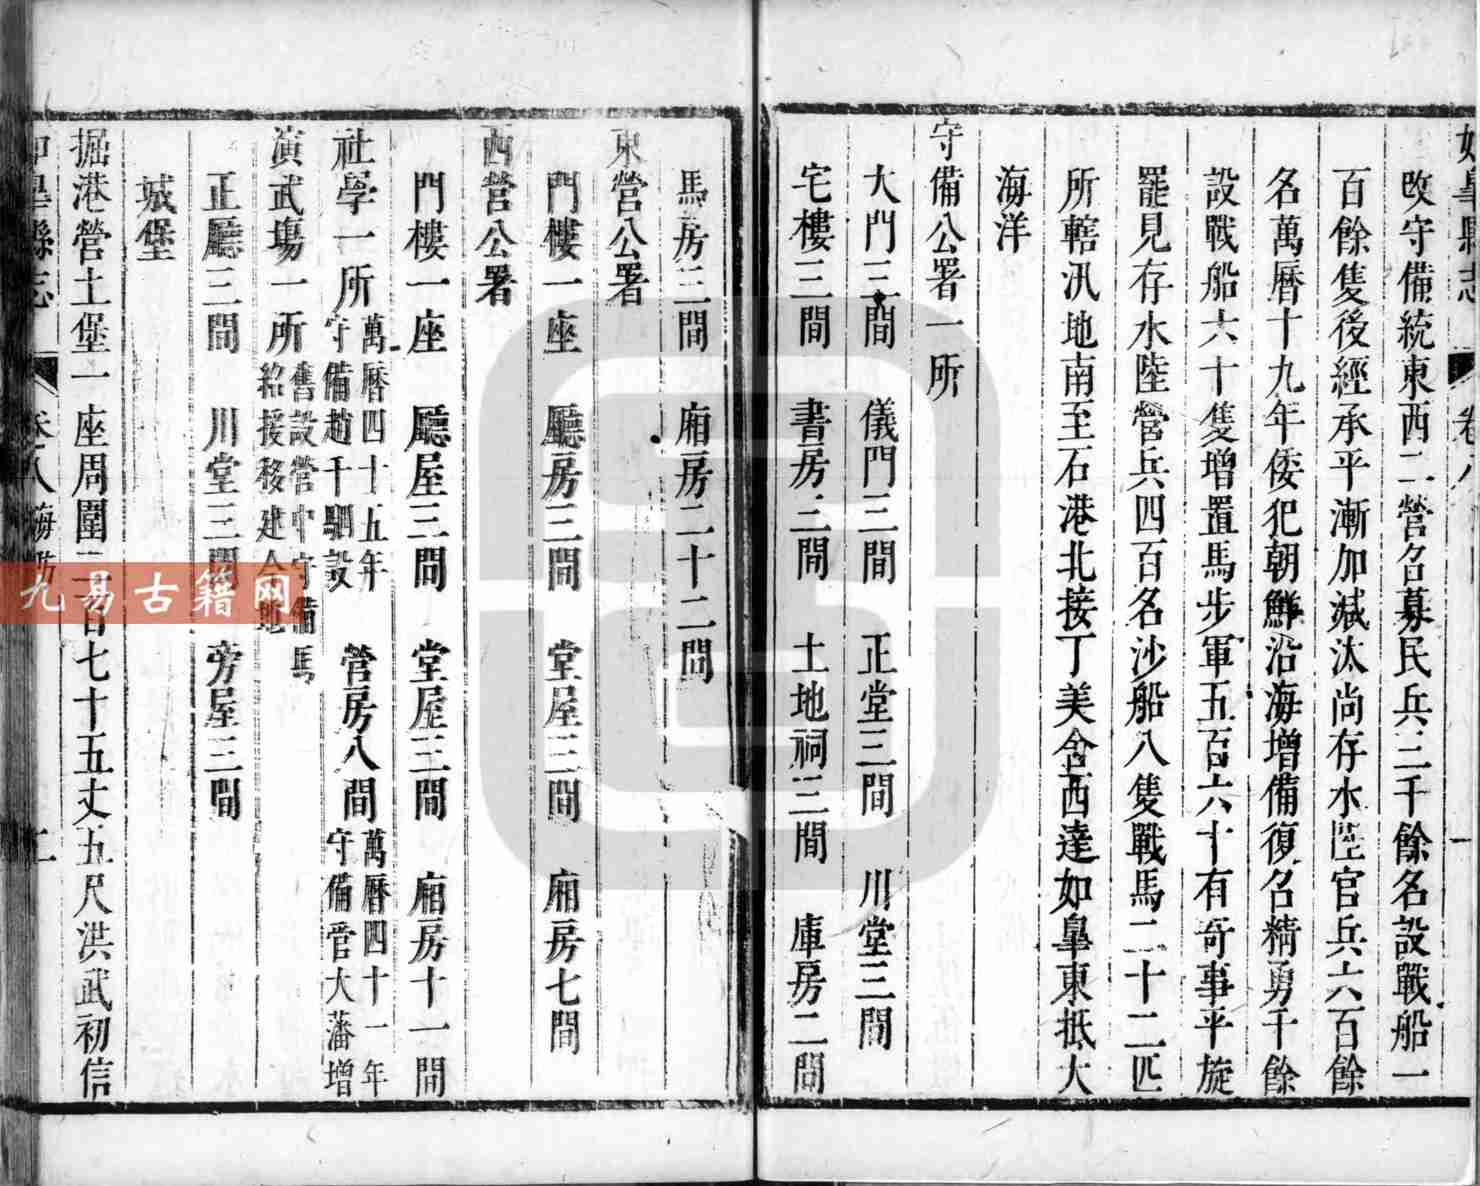 如皐縣志
卷八
一
攺守備統東西二營名募民兵三千餘名設戰船一
百餘隻後經承平漸加减汰尚存水陸官兵六百餘
名萬曆十九年倭犯朝鮮沿海增備復召精勇千餘
設戰船六十隻增置馬步軍五百六十有奇事平旋
罷見存水陸營兵四百名沙船八隻戰馬二十二匹
所轄汛地南至石港北接丁美舍西達如皐東抵大
海洋
守備公署一所
大門三間 儀門三間 正堂三間 川堂三間
宅樓三間 書房三間 土地祠三間 庫房二間
馬房三間 廂房二十二間
東營公署
門樓一座 廳房三間 堂屋三間 廂房七間
西營公署
門樓一座 廳屋三間 堂屋三間 廂房十一間
社學一所 萬曆四十五年守備趙千駟設 營房八間 萬曆四十一年守備晉大藩增
演武塲一所 舊設營中守備馬紹接移建今地
正廳三間 川堂三間 旁屋三間
城堡
掘港營土堡一座周圍百七十五丈五尺洪武初信
卷八
九易古籍网